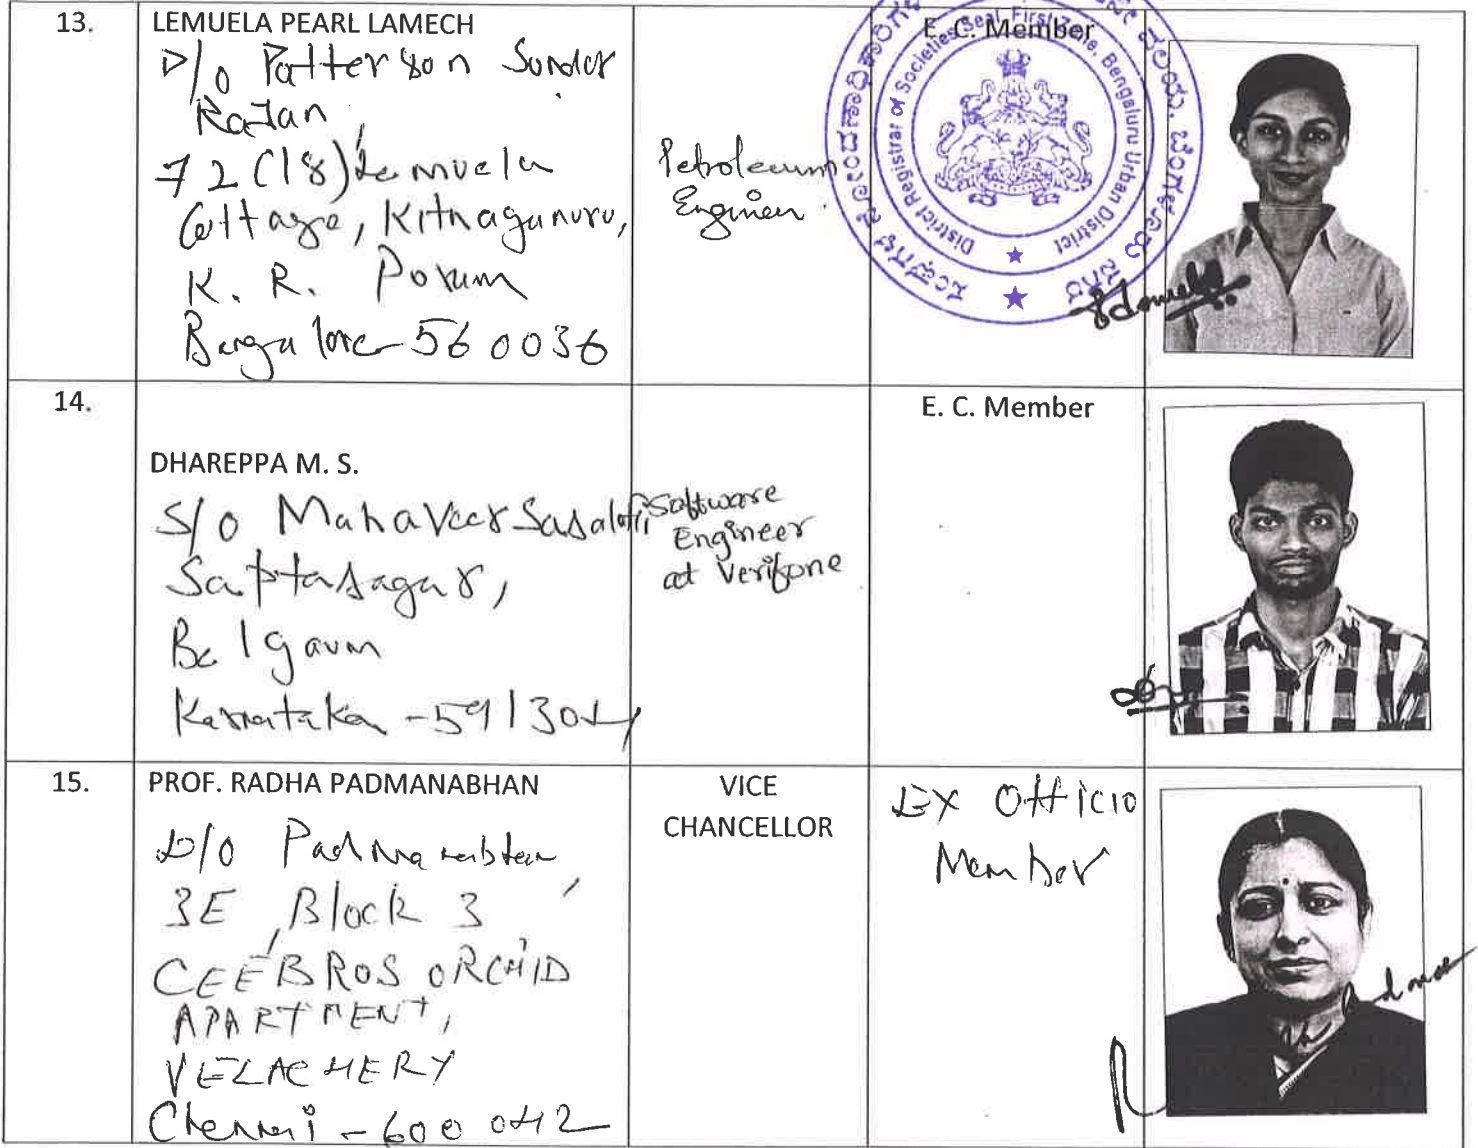 13.
LEMUELA PEARL LAMECH
D/o Patterson Sunder
Rajan,
72(18) Lemuela
Cottage, Kithaganuru,
K. R. Puram
Bangalore-560036
Petroleum
Engineer
E. C. Member
District Registrar of Societies Seal First Zone, Bengaluru Urban District
14.
DHAREPPA M. S.
S/o Mahaveer
Saptasagar,
Belgaum
Karnataka -591304
Software
Engineer
at Verifone
E. C. Member
15.
PROF. RADHA PADMANABHAN
D/O Padmanabhan,
3E, Block 3
CEEBROS ORCHID
APARTMENT,
VELACHERY
Chennai - 600 042
VICE
CHANCELLOR
EX Officio
Member